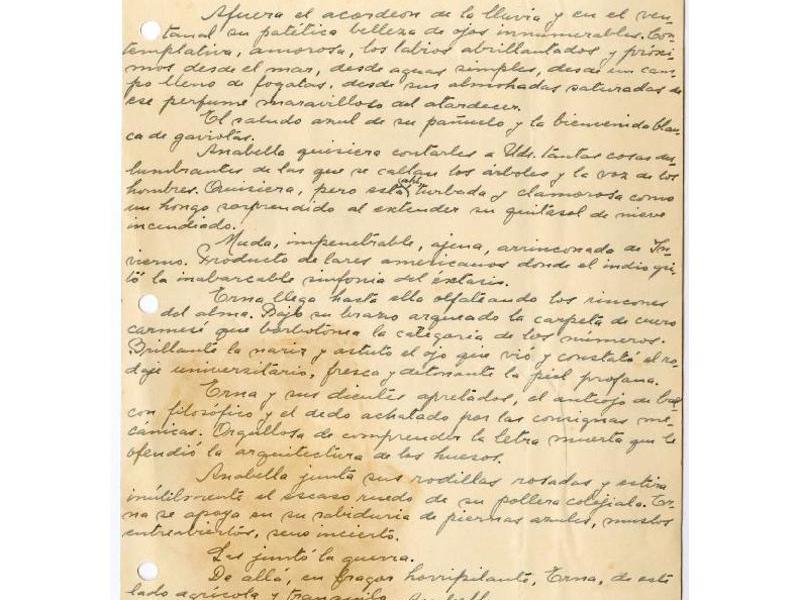 Afuera el acordeón de la lluvia y en el ven-
tanal su patética belleza de ojos innumerables. Con-
templativa, amorosa, los labios abrillantados y próxi-
mos desde el mar, desde aguas simples, desde un cam-
po lleno de fogatas, desde sus almohadas saturadas de
ese perfume maravilloso del atardecer.
El saludo azul de su pañuelo y la bienvenida blan-
ca de gaviotas.
Anabella quisiera contarles a Uds. tantas cosas des-
lumbrantes de las que se callan los árboles y la voz de los
hombres. Quisiera, pero está ahí turbada y clamorosa como
un hongo sorprendido al extender su quitasol de nieve
incendiado.
Muda, impenetrable, ajena, arrinconada de In-
vierno. Producto de lares americanos donde el indio gri-
tó la inabarcable sinfonía del éxtasis.
Erna llega hasta ella olfateando los rincones
del alma. Bajo su brazo arqueado la carpeta de cuero
carmesí que borbotonea la categoría de los números.
Brillante la nariz y astuto el ojo que vió y constató el ro-
daje universitario, fresca y detonante la piel profana.
Erna y sus dientes apretados, el anteojo de bal-
cón filosófico y el dedo achatado por las consignas me-
cánicas. Orgullosa de comprender la letra muerta que le
ofendió la arquitectura de los huesos.
Anabella junta sus rodillas rosadas y estira
inútilmente el escaso ruedo de su pollera colejiala. Er-
na se apoya en su sabiduría de piernas azules, muslos
entreabiertos, seno incierto.
Las juntó la guerra.
De allá, en fragor horripilante, Erna, de este
lado agrícola y tranquilo